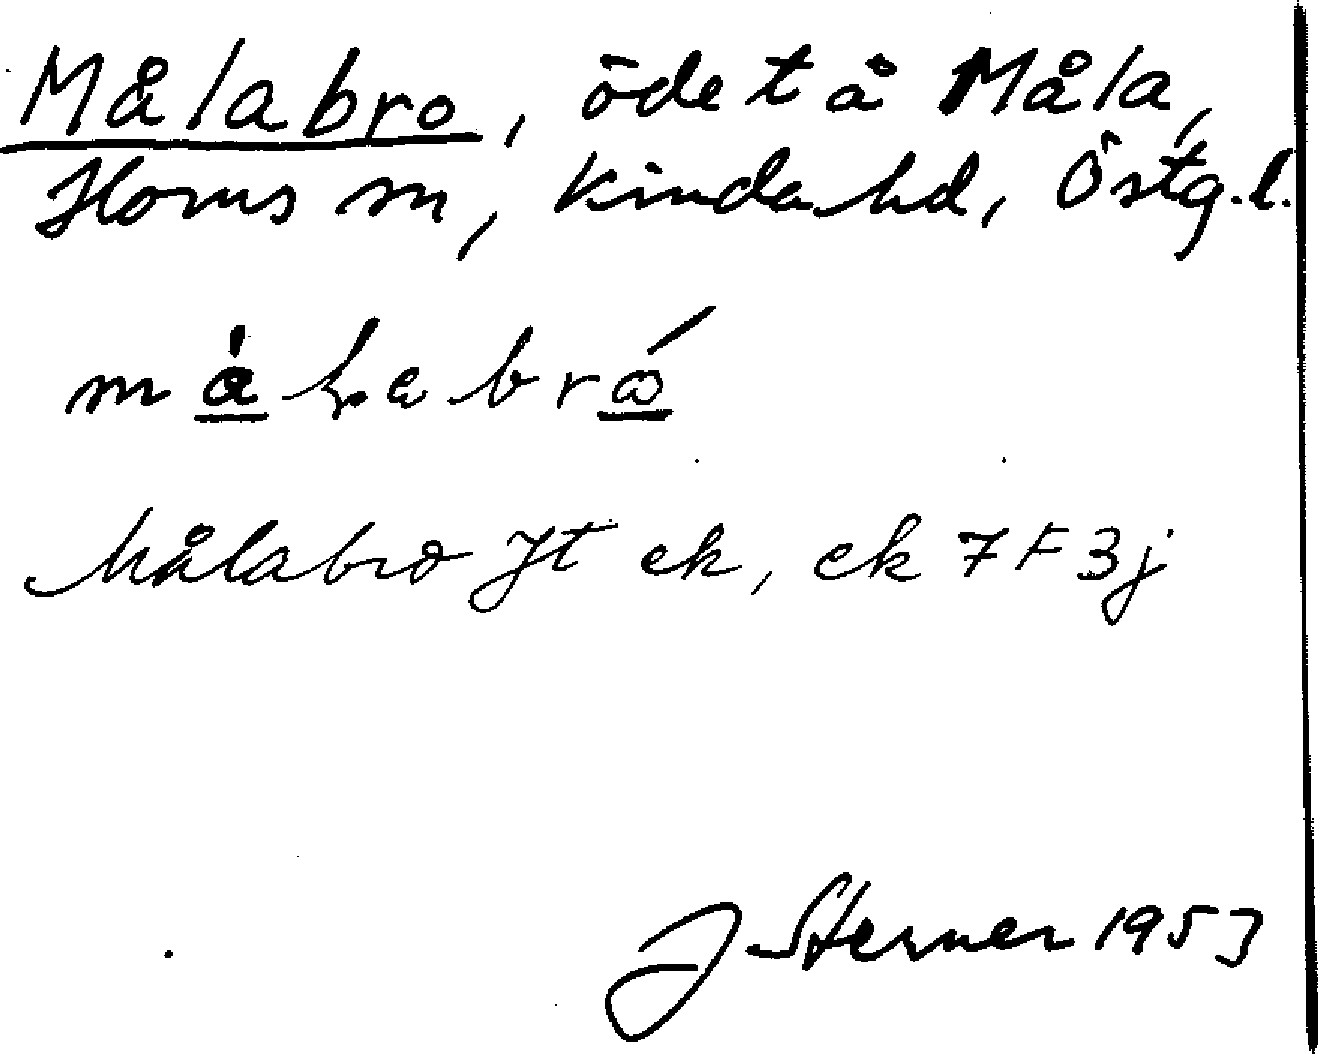 Målabro, öde t å Måla,
Horns sn, Kinda hd, Östg.l.
målabro Jt ek, ek 7F3j
J Sterner 1953